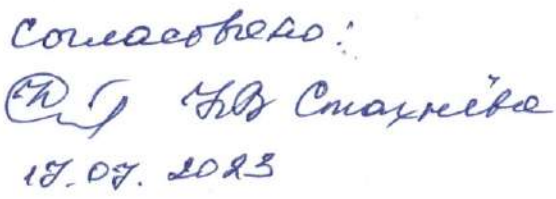 Согласовано:
НВ Стахнёва
17.07.2023